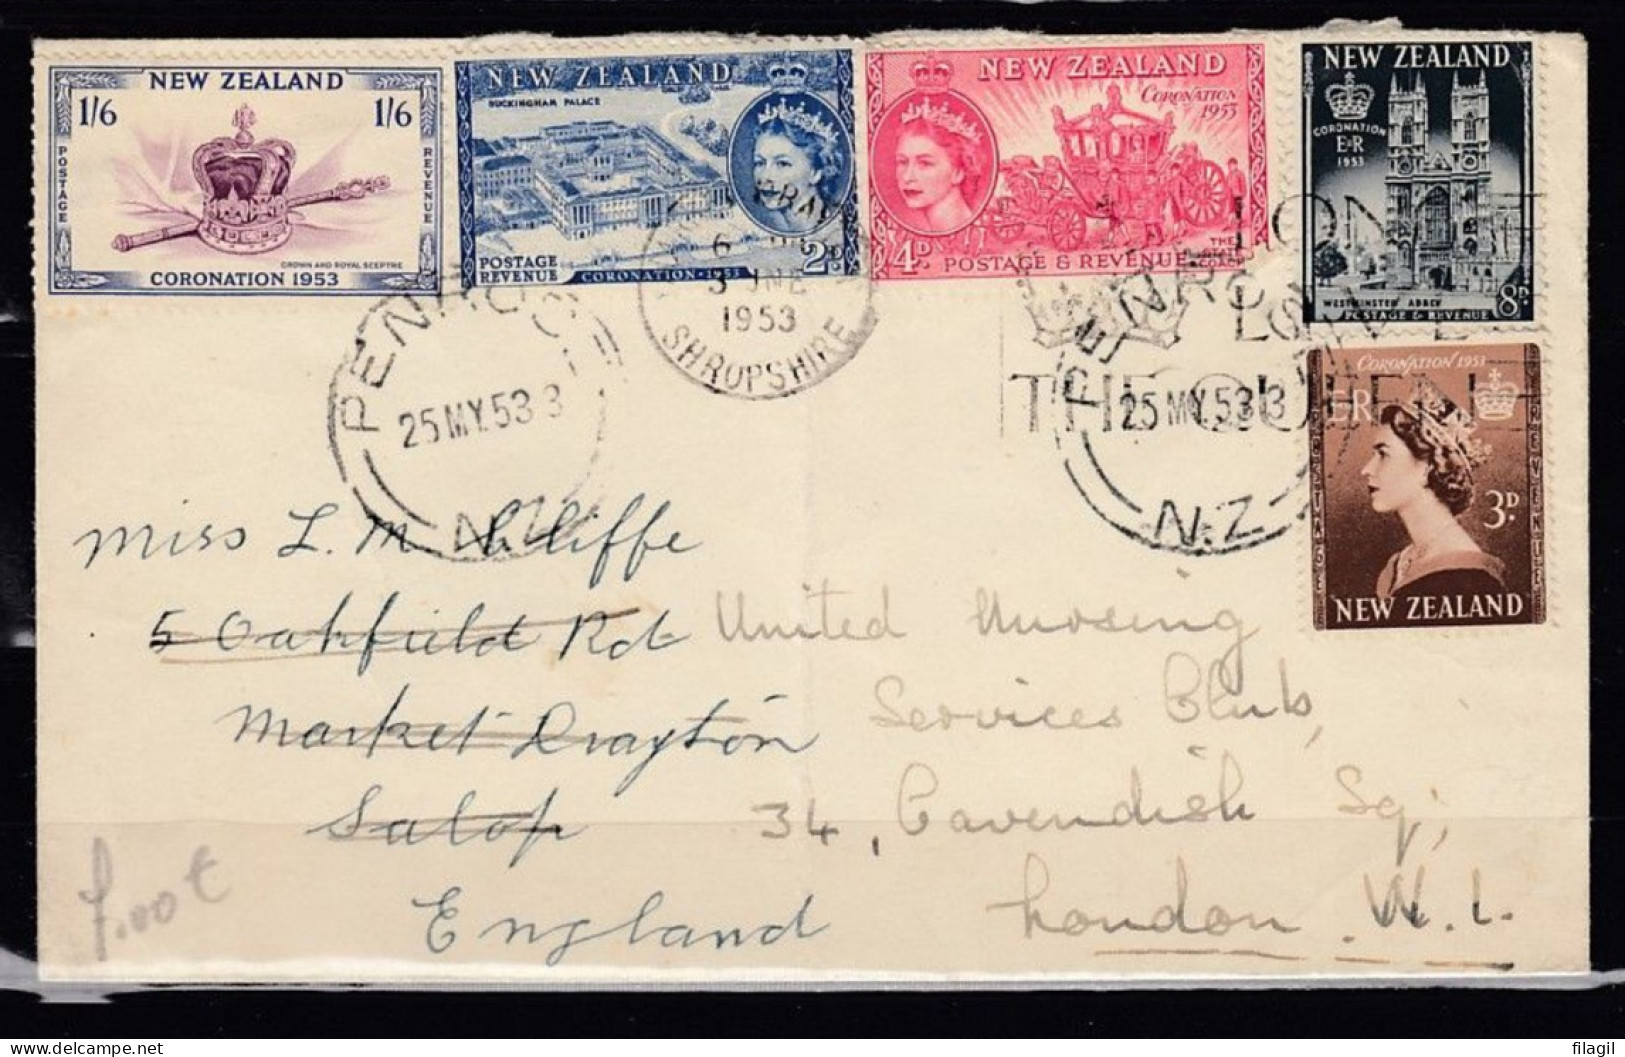 NEW ZEALAND
1/6 1/6
POSTAGE REVENUE
CROWN AND ROYAL SCEPTRE
CORONATION 1953
NEW ZEALAND
BUCKINGHAM PALACE
POSTAGE REVENUE 2D
CORONATION · 1953
NEW ZEALAND
CORONATION 1953
4D POSTAGE & REVENUE
NEW ZEALAND
CORONATION
E R
1953
WESTMINSTER ABBEY 8D
POSTAGE & REVENUE
CORONATION 1953
ER
3D
NEW ZEALAND
PENROSE
25 MY. 53 3
N.Z
6
3 JNE
1953
SHROPSHIRE
LONG
LIVE
THE QUEEN
PENROSE
25 MY. 53 3
N.Z
Miss L. M.
5 Oakfield Rd
Market Drayton
Salop
England
United Nursing
Services Club,
34, Cavendish Sq;
London. W.1.
filagil